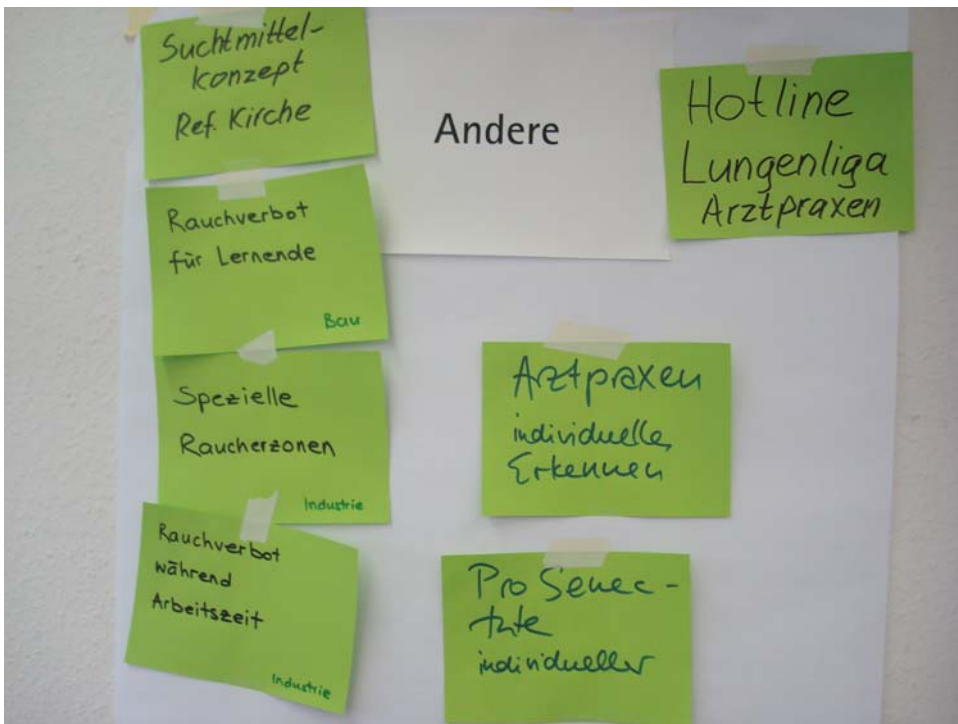 Suchtmittel-
konzept
Ref. Kirche
Andere
Hotline
Lungenliga
Arztpraxen
Rauchverbot
für Lernende
Bau
Spezielle
Raucherzonen
Industrie
Rauchverbot
während
Arbeitszeit
Industrie
Arztpraxen
individuelles
Erkennen
Pro Senec-
tute
individueller